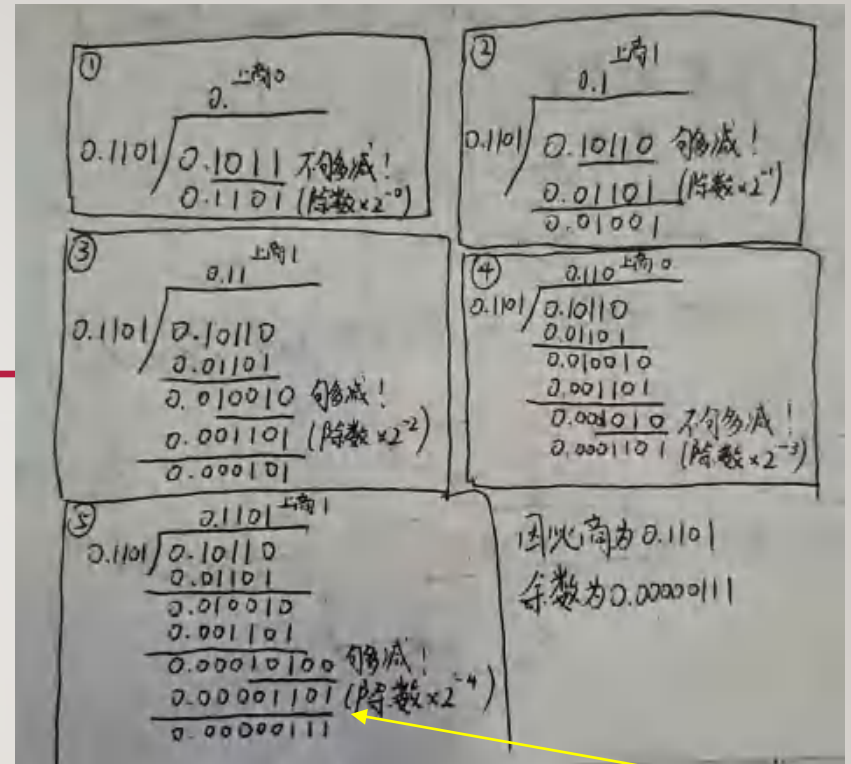 ① 上商0
0.
0.1101 0.1011 不够减!
0.1101 (除数×2⁻⁰)
② 上商1
0.1
0.1101 0.10110 够减!
0.01101 (除数×2⁻¹)
0.01001
③ 上商1
0.11
0.1101 0.10110
0.01101
0.010010 够减!
0.001101 (除数×2⁻²)
0.000101
④ 0.110 上商0
0.1101 0.10110
0.01101
0.010010
0.001101
0.001010 不够减!
0.0001101 (除数×2⁻³)
⑤ 0.1101 上商1
0.1101 0.10110
0.01101
0.010010
0.001101
0.00010100 够减!
0.00001101 (除数×2⁻⁴)
0.00000111
因此商为0.1101
余数为0.00000111